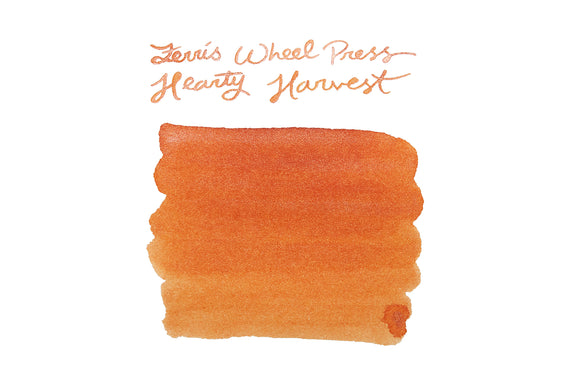 Ferris Wheel Press
Hearty Harvest